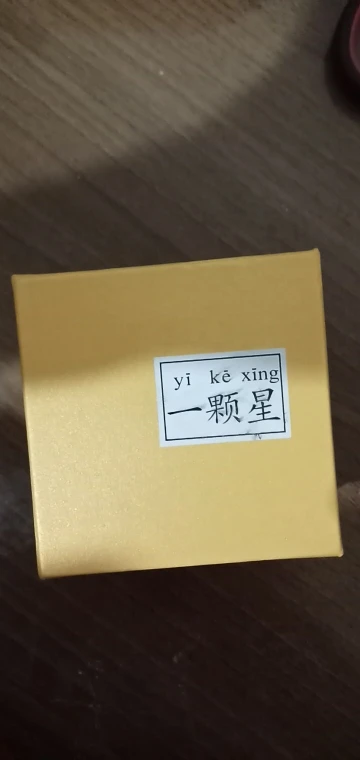 yī kē xīng
一颗星